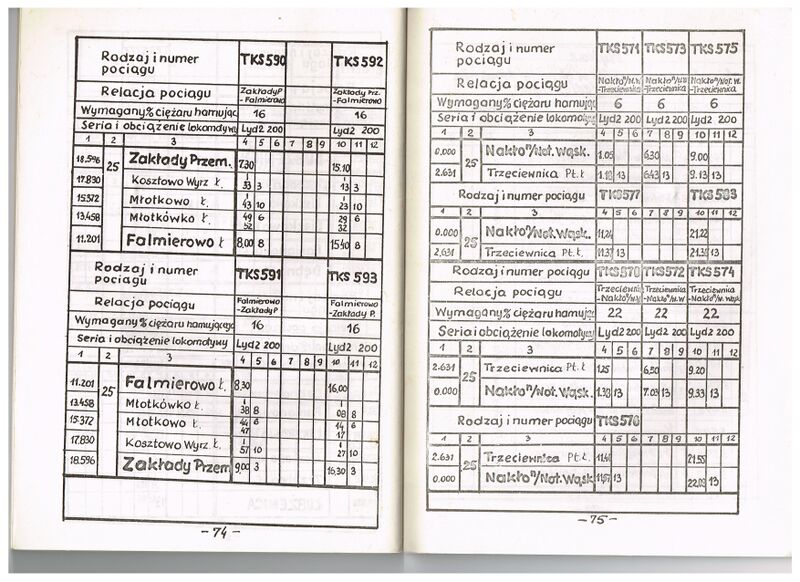 Rodzaj i numer pociągu TKS590 TKS592
Relacja pociągu Zakłady P -Falmierowo Zakłady Prz. -Falmierowo
Wymagany % ciężaru hamując 16 16
Seria i obciążenie lokomotywy Lyd2 200 Lyd2 200
1 2 3 4 5 6 7 8 9 10 11 12
18.596 25 Zakłady Przem. 7.30 15.10
17.830 Kosztowo Wyrz Ł. | 33 3 | 13 3
15.372 Młotkowo Ł. | 43 10 | 23 10
13.458 Młotkówko Ł. 49 52 6 29 32 6
11.201 Falmierowo Ł 8.00 8 15.40 8
Rodzaj i numer pociągu TKS591 TKS593
Relacja pociągu Falmierowo -Zakłady P. Falmierowo -Zakłady P.
Wymagany % ciężaru hamującego 16 16
Seria i obciążenie lokomotywy Lyd2 200 Lyd2 200
1 2 3 4 5 6 7 8 9 10 11 12
11.201 25 Falmierowo Ł. 8.30 16.00
13.458 Młotkówko Ł. | 38 8 | 08 8
15.372 Młotkowo Ł. 44 47 6 14 17 6
17.830 Kosztowo Wyrz. Ł. | 57 10 | 27 10
18.596 Zakłady Przem 9.00 3 16.30 3
- 74 -
Rodzaj i numer pociągu TKS571 TKS573 TKS575
Relacja pociągu Nakło n/N.W. -Trzeciewnica Nakło n/N.W -Trzeciewnica Nakło n/Not. W. -Trzeciewnica
Wymagany % ciężaru hamując 6 6 6
Seria i obciążenie lokomotywy Lyd2 200 Lyd2 200 Lyd2 200
1 2 3 4 5 6 7 8 9 10 11 12
0.000 25 Nakło n/Not. Wąsk. 1.05 6.30 9.00
2.631 Trzeciewnica Pt. Ł 1.18 13 6.43 13 9.13 13
Rodzaj i numer pociągu TKS577 TKS583
1 2 3 4 5 6 7 8 9 10 11 12
0.000 25 Nakło n/Not. Wąsk. 11.24 21.22
2,631 Trzeciewnica Pt. Ł. 11.37 13 21.35 13
Rodzaj i numer pociągu TKS570 TKS572 TKS574
Relacja pociągu Trzeciewnica -Nakło n/N.W. Trzeciewnica -Nakło n/N. W Trzeciewnica -Nakło n/N. Wąsk
Wymagany % ciężaru hamując 22 22 22
Seria i obciążenie lokomotywy Lyd2 200 Lyd2 200 Lyd2 200
1 2 3 4 5 6 7 8 9 10 11 12
2.631 25 Trzeciewnica Pt. Ł 1.25 6.50 9.20
0.000 Nakło n/Not. Wąsk. 1.38 13 7.03 13 9.33 13
Rodzaj i numer pociągu TKS576
1 2 3 4 5 6 7 8 9 10 11 12
2.631 25 Trzeciewnica Pt. Ł. 11.44 21.55
0.000 Nakło n/Not. Wąsk 11.57 13 22.08 13
- 75 -